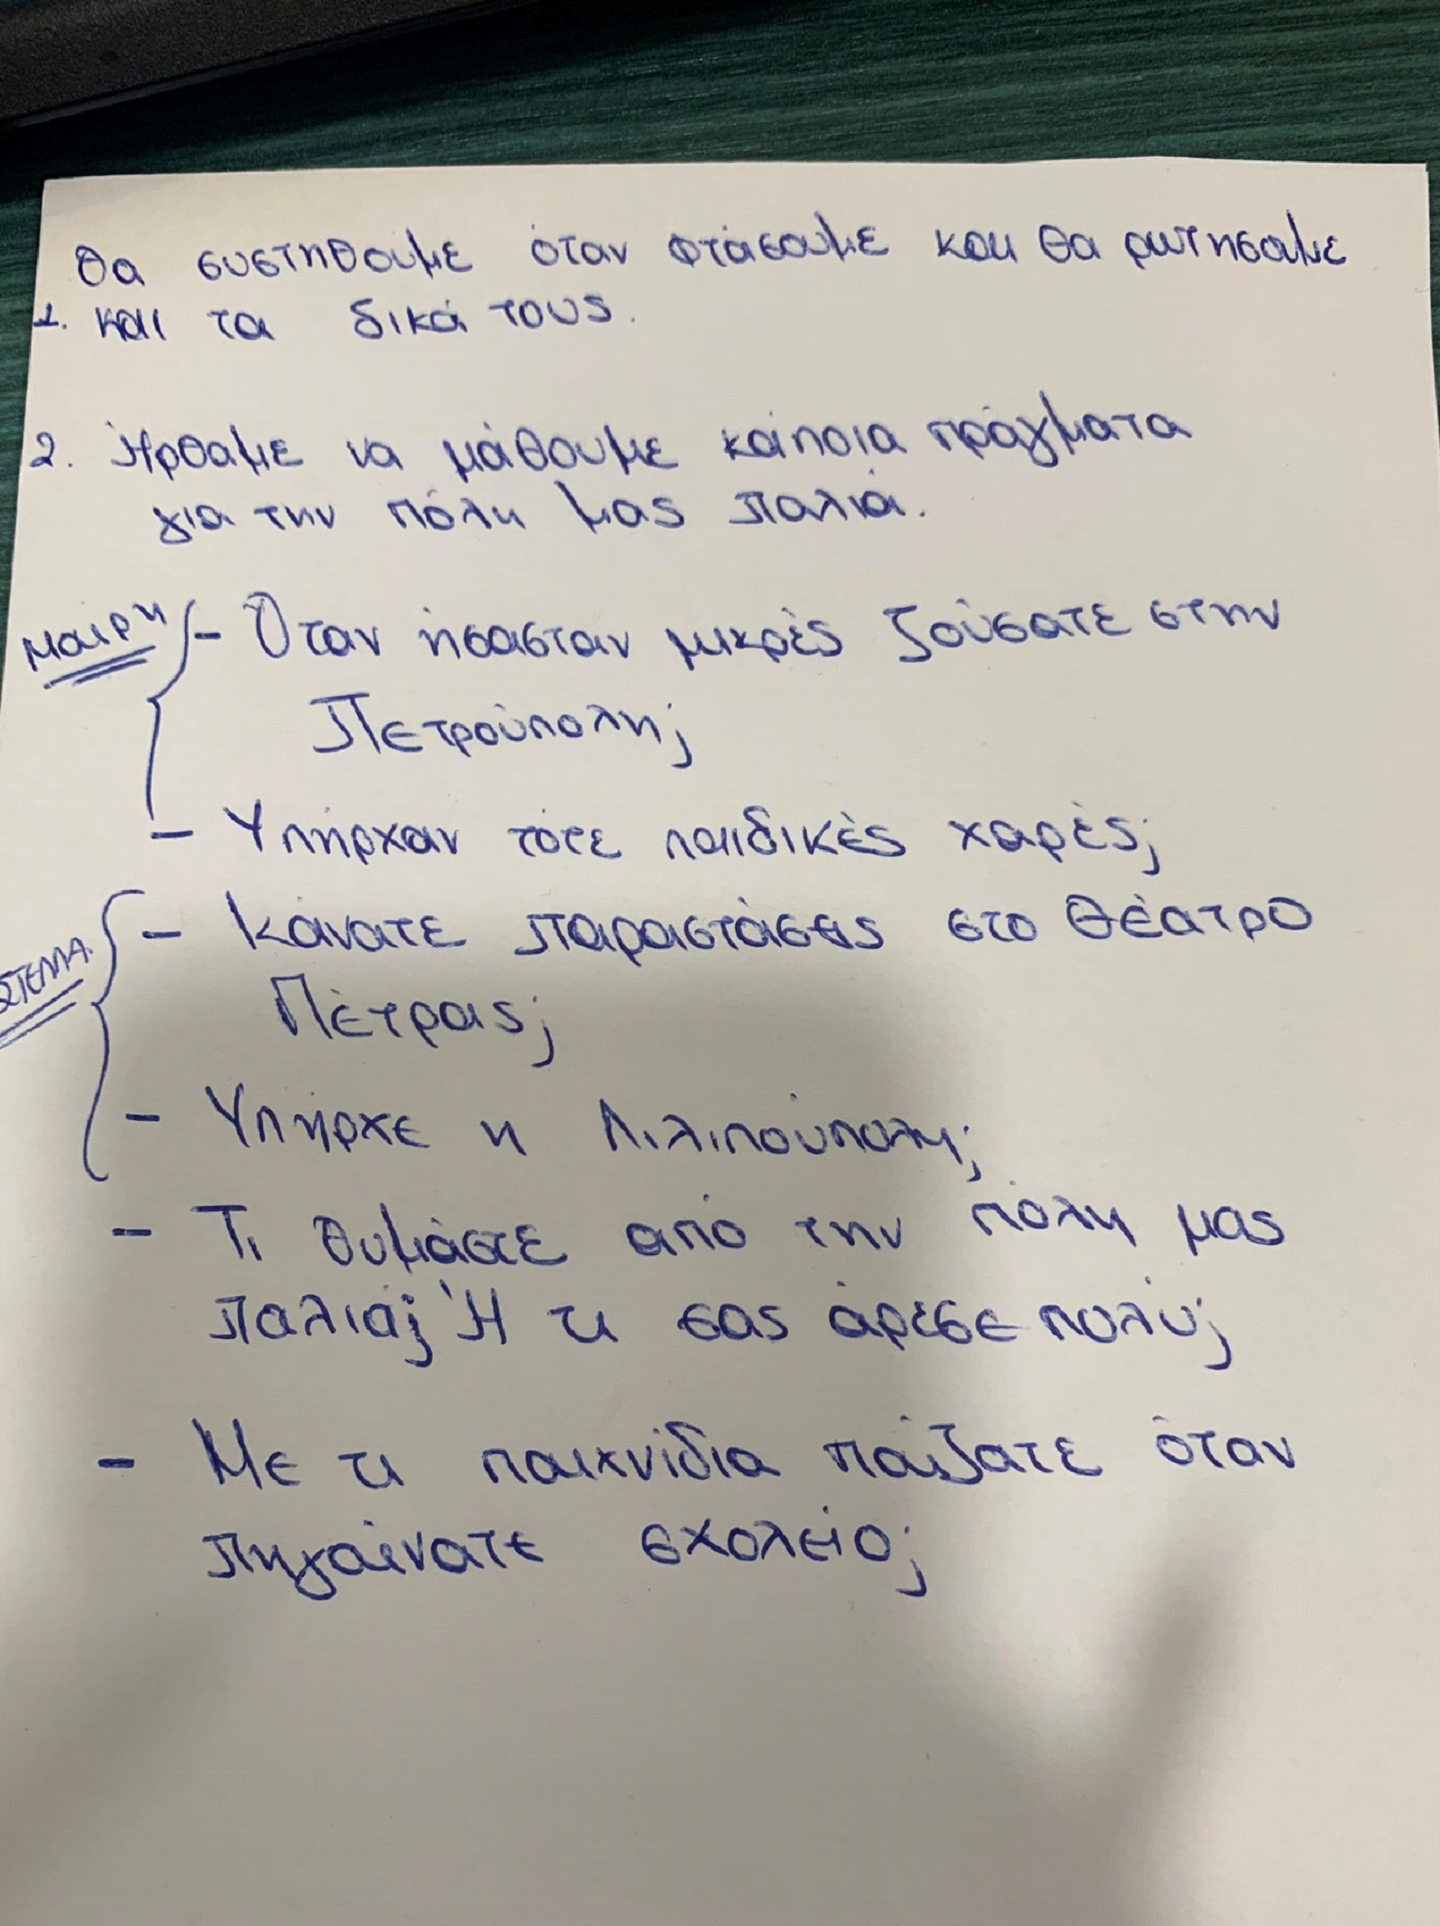 Θα συστηθούμε όταν φτάσουμε και θα ρωτησαμε
1. και τα δικά τους.
2. Ήρθαμε να μάθουμε κάποια πράγματα
για την πόλη μας παλιά.
ΜΑΙΡΗ - Όταν ήσασταν μικρές ζούσατε στην
Πετρούπολη;
- Υπήρχαν τότε παιδικές χαρές;
ΣΤΕΛΛΑ - Κάνατε παραστάσεις στο Θέατρο
Πέτρας;
- Υπήρχε η Λιλιπούπολη;
- Τι θυμάστε από την πόλη μας
παλιά; Ή τι σας άρεσε πολύ;
- Με τι παιχνίδια παίζατε όταν
πηγαίνατε σχολείο;